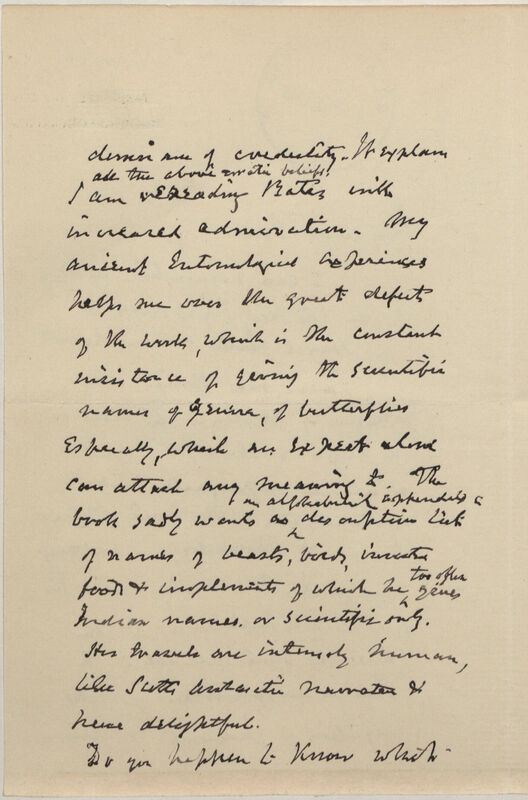 demise of credulity. It explains
all the above erratic beliefs!
I am rereading Bates with
increased admiration. My
ancient Entomological experience
helps me over the great defect
of the work, which is the constant
insistance of giving the scientific
names of genera, of butterflies
Especially, which an Expert alone
can attach any meaning to. The
book sadly wants as an alphabetical appendix a descriptive list
of names of beasts, birds, insects
foods & implements of which he too often gives
Indian names. or scientific only.
His travels are intensely human,
like Scotts Antarctic narrative &
hence delightful.
Do you happen to know which